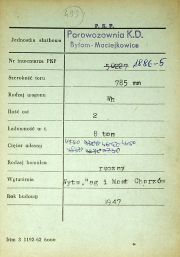 P. K. P.
Jednostka służbowa
Parowozownia K.D.
Bytom-Maciejkowice
Nr inwentarza PKP
1886-5
Szerokość toru 785 mm
Rodzaj wagonu Wh
Ilość osi 2
Ładowność w t. 8 ton
Ciężar własny
Rodzaj hamulca ręczny
Wytwórnia Wytw. Wag i Most Chorzów
Rok budowy 1947